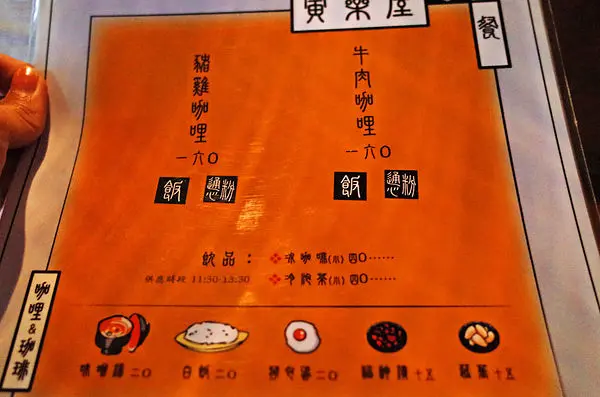 寅樂屋
餐
豬雞咖哩
一六〇
飯 通粉
牛肉咖哩
一六〇
飯 通粉
飲品：
冰咖啡(小) 四〇……
供應時段 11:30-13:30
冷泡茶(小) 四〇……
咖哩&珈琲
味噌湯 二〇
白飯 二〇
二〇
十五
十五